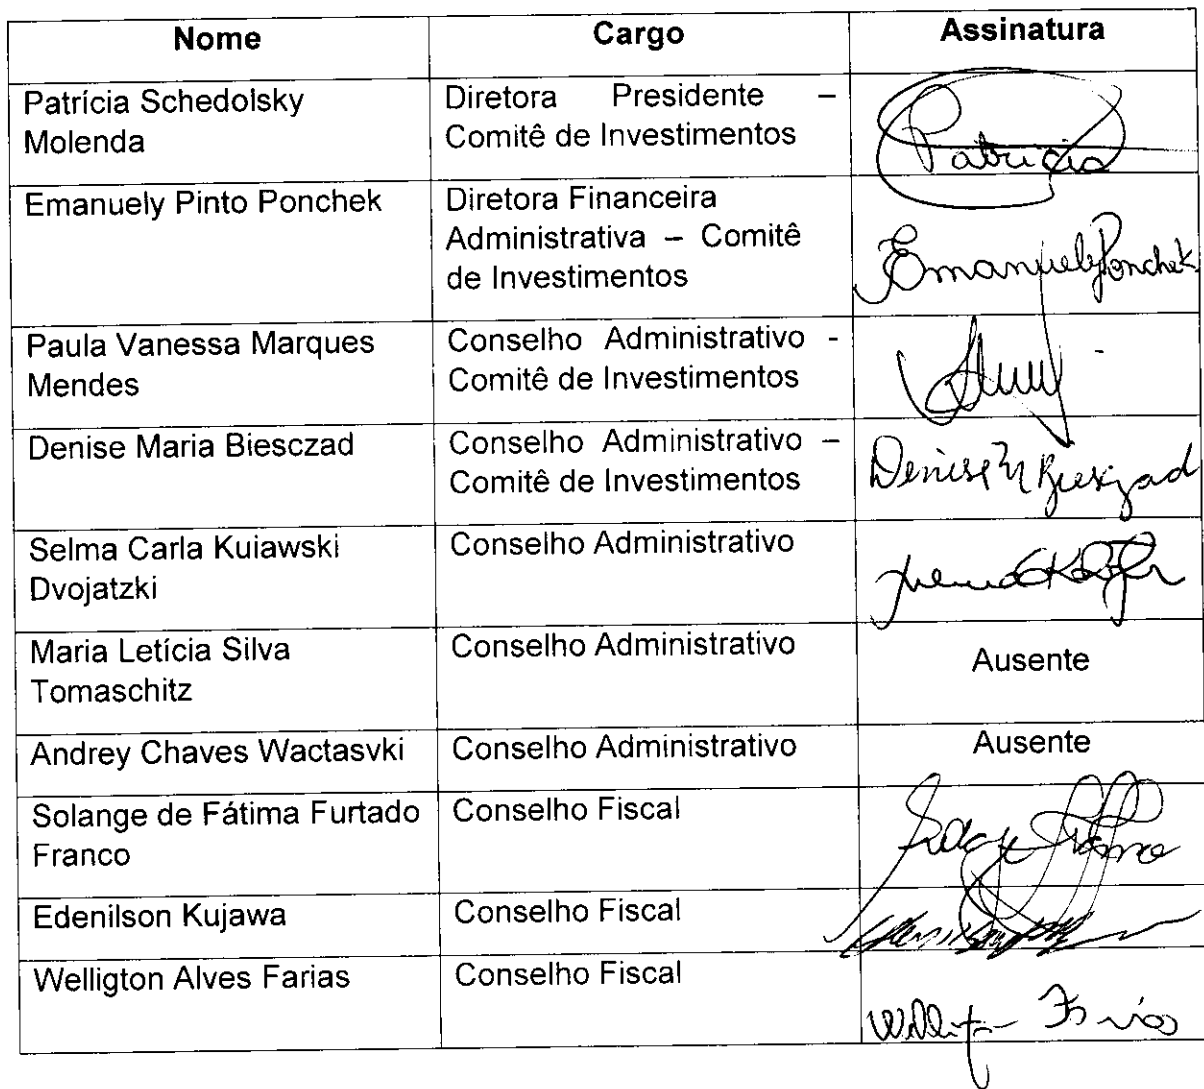 Nome Cargo Assinatura
Patrícia Schedolsky Diretora Presidente –
Molenda Comitê de Investimentos
Patricia
Emanuely Pinto Ponchek Diretora Financeira
Administrativa – Comitê
de Investimentos
Emanuely Ponchek
Paula Vanessa Marques Conselho Administrativo -
Mendes Comitê de Investimentos
Denise Maria Biesczad Conselho Administrativo –
Comitê de Investimentos
Denise M Biesczad
Selma Carla Kuiawski Conselho Administrativo
Dvojatzki
Maria Letícia Silva Conselho Administrativo Ausente
Tomaschitz
Andrey Chaves Wactasvki Conselho Administrativo Ausente
Solange de Fátima Furtado Conselho Fiscal
Franco
Edenilson Kujawa Conselho Fiscal
Welligton Alves Farias Conselho Fiscal